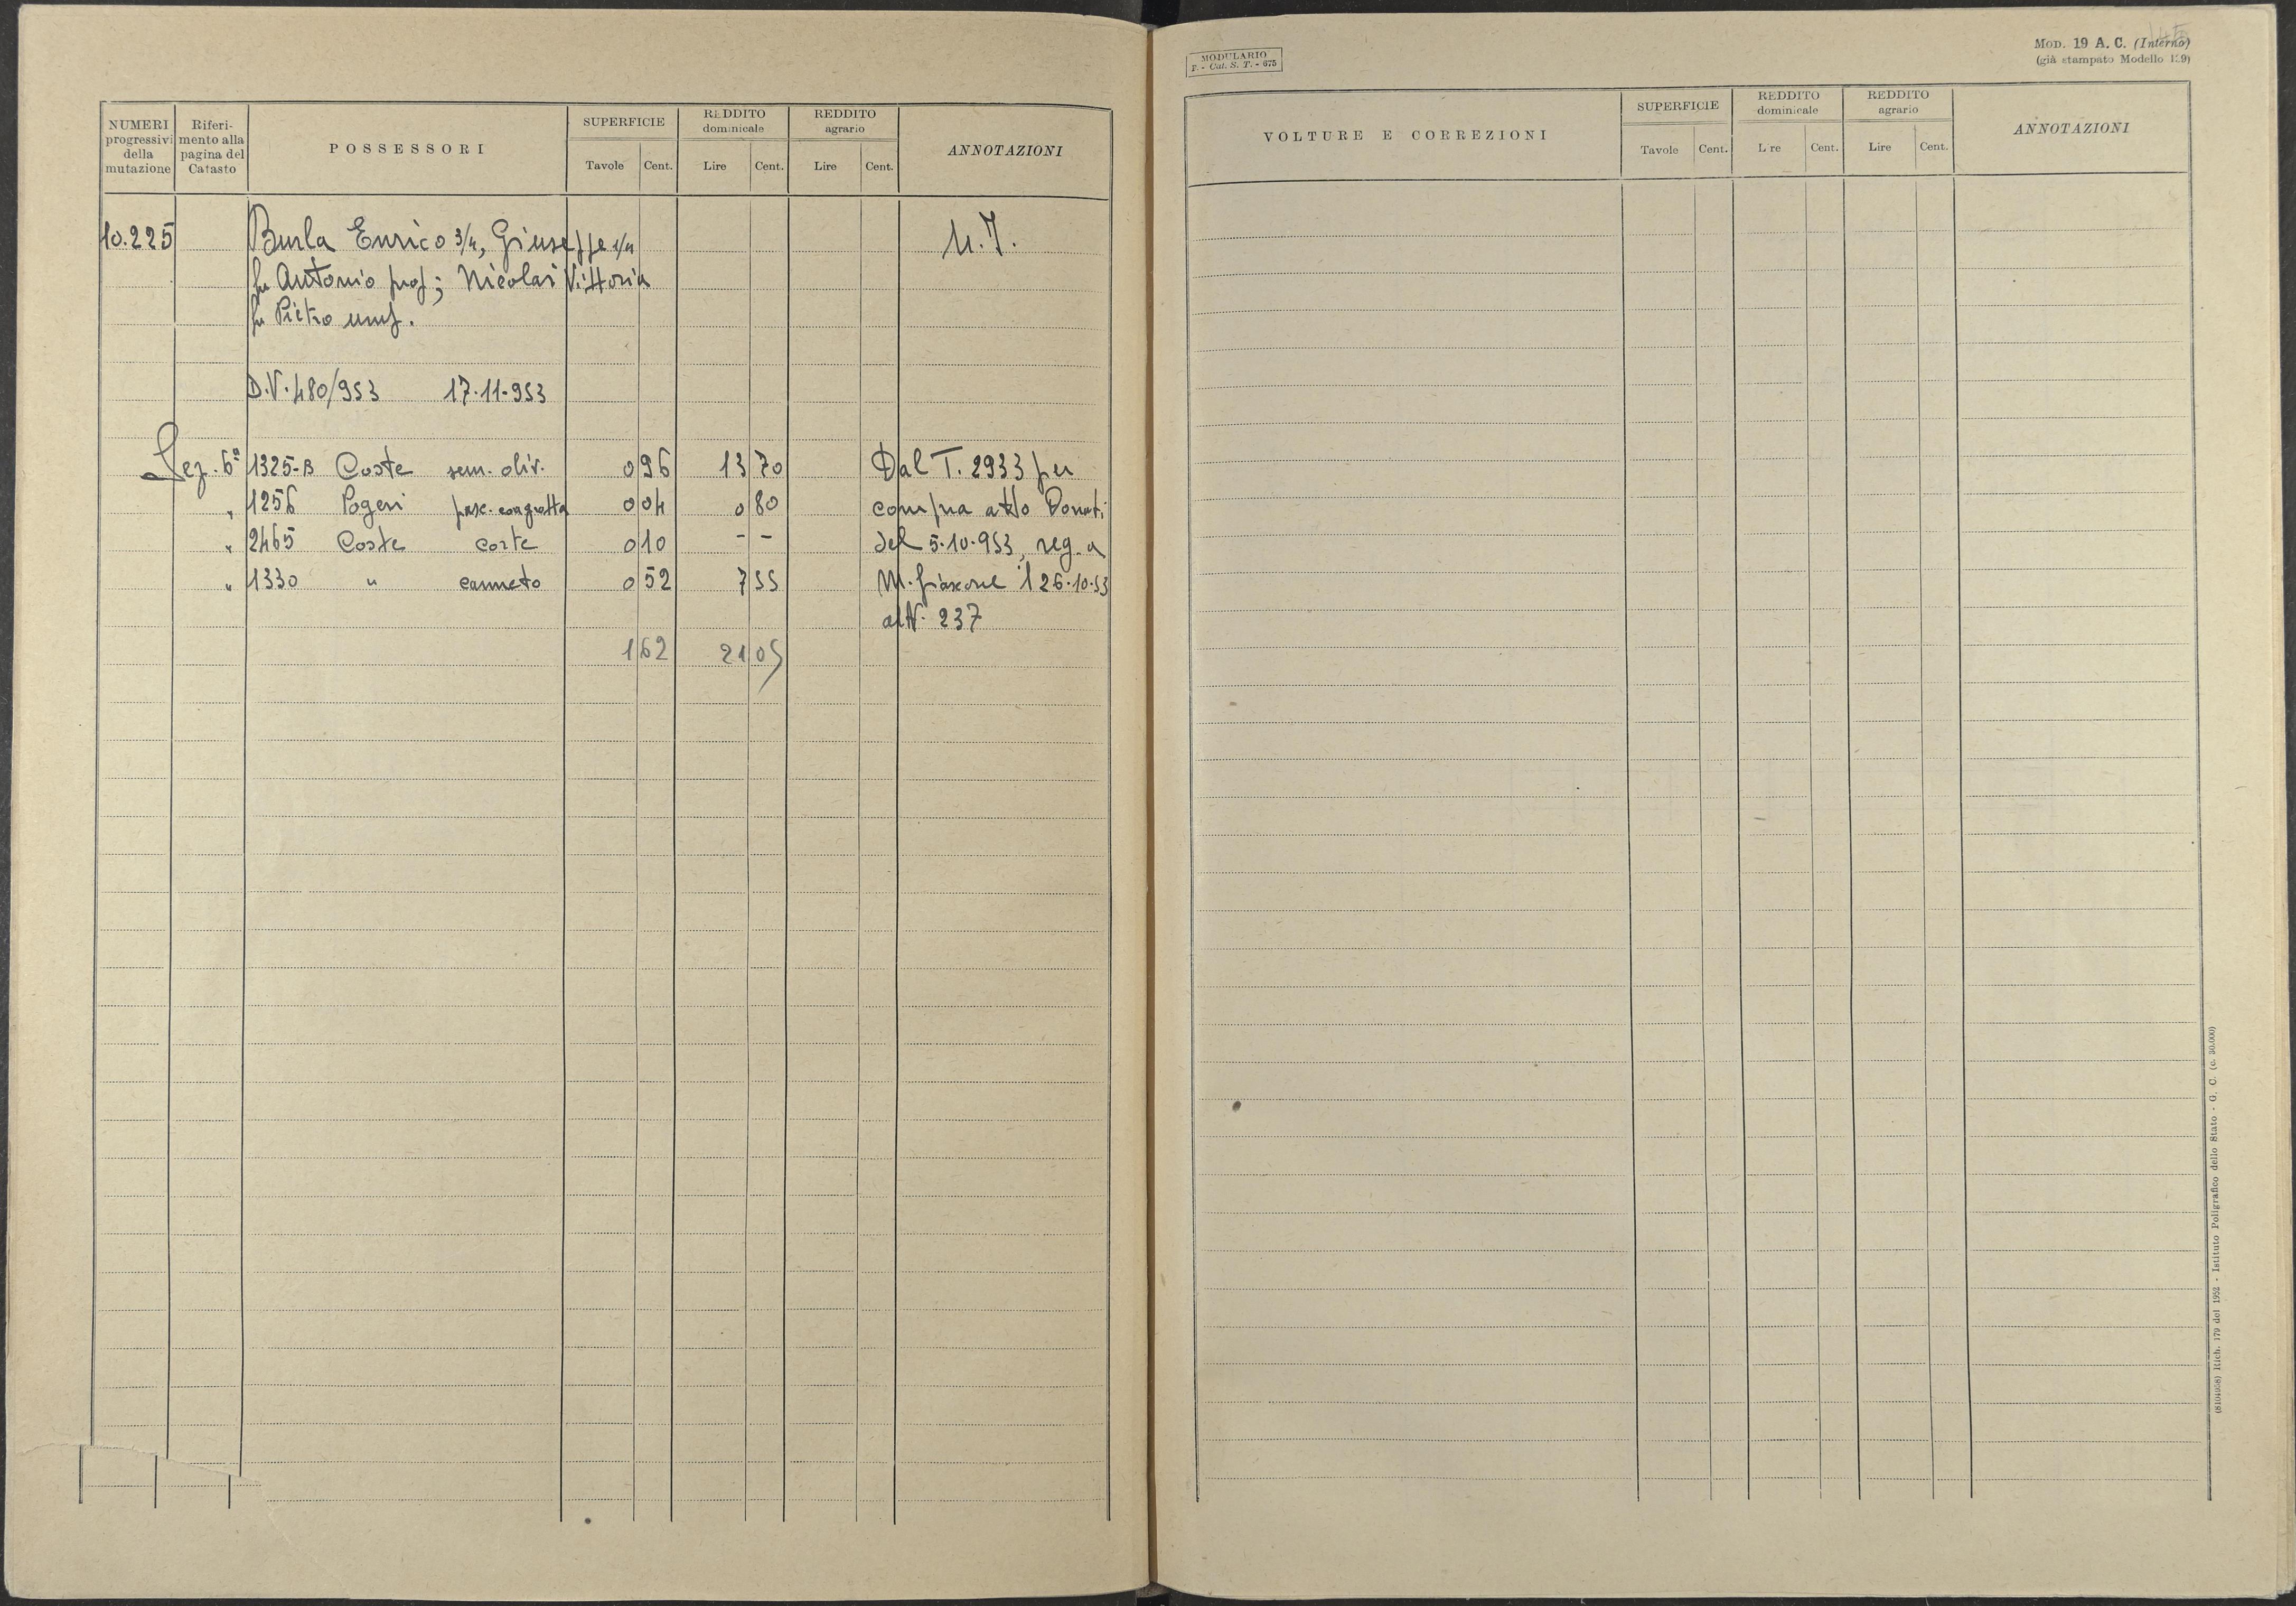 NUMERI progressivi della mutazione
Riferimento alla pagina del Catasto
POSSESSORI
SUPERFICIE
Tavole Cent.
REDDITO dominicale
Lire Cent.
REDDITO agrario
Lire Cent.
ANNOTAZIONI
10.225 Burla Enrico 3/4, Giuseppe 1/4
fu Antonio prop; Nicolai Vittoria
fu Pietro usuf.
D.V. 480/953 17-11-953
Sez. 6ª 1325-B Coste sem. oliv. 0 96 13 70 Dal T. 2933 per
" 1256 Pogeri pasc. 0 04 0 80 compra atto Donati
" 2465 Coste corte 0 10 - - del 5-10-953, reg. a
" 1330 " canneto 0 52 7 55 126-10-53
al N. 237
1 62 21 05
MODULARIO
F. - Cat. S. T. - 675
MOD. 19 A. C. (Interno)
(già stampato Modello 129)
VOLTURE E CORREZIONI
SUPERFICIE
Tavole Cent.
REDDITO dominicale
L re Cent.
REDDITO agrario
Lire Cent.
ANNOTAZIONI
Rich. 179 del 1952 - Istituto Poligrafico dello Stato - G. C. (c. 30.000)